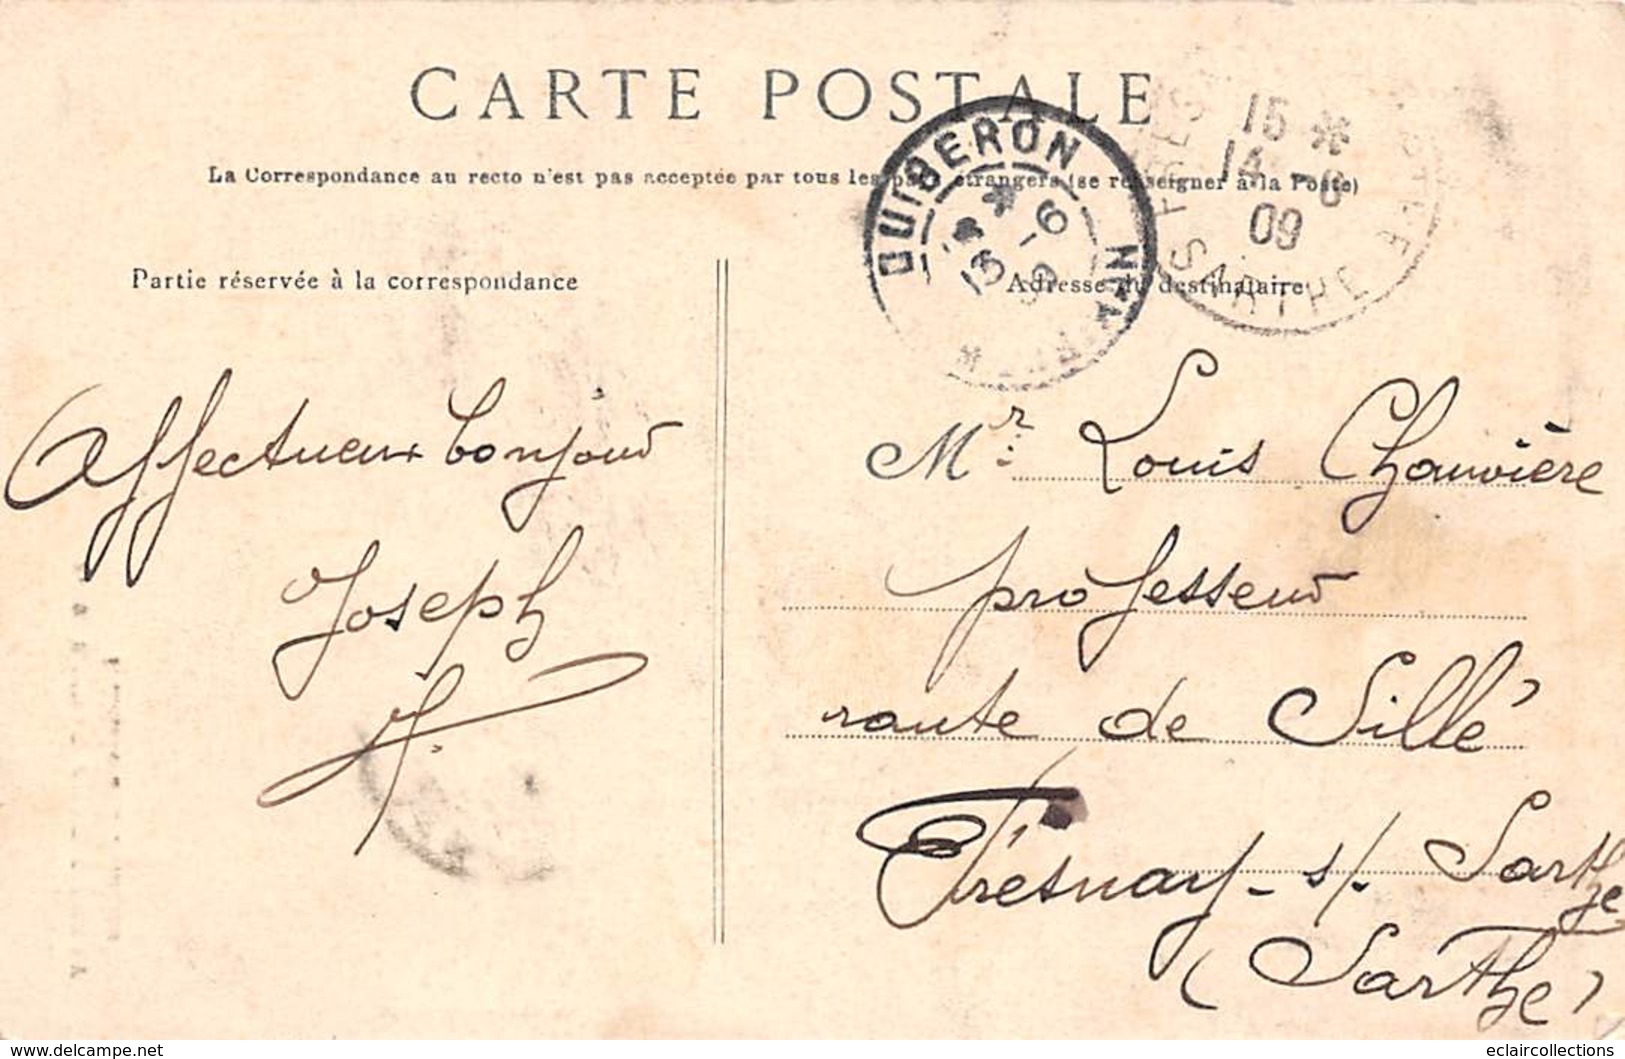 CARTE POSTALE
La Correspondance au recto n'est pas acceptée par tous les pays étrangers (se renseigner à la Poste)
Partie réservée à la correspondance
Adresse du destinataire
QUIBERON
13 -6
09
15 *
14 -6
09
SARTHE
Affectueux bonjour
Joseph
Mr Louis Chauvière
professeur
route de Sillé
Fresnay-s/. Sarthe
(Sarthe)
delcampe.net
eclaircollections